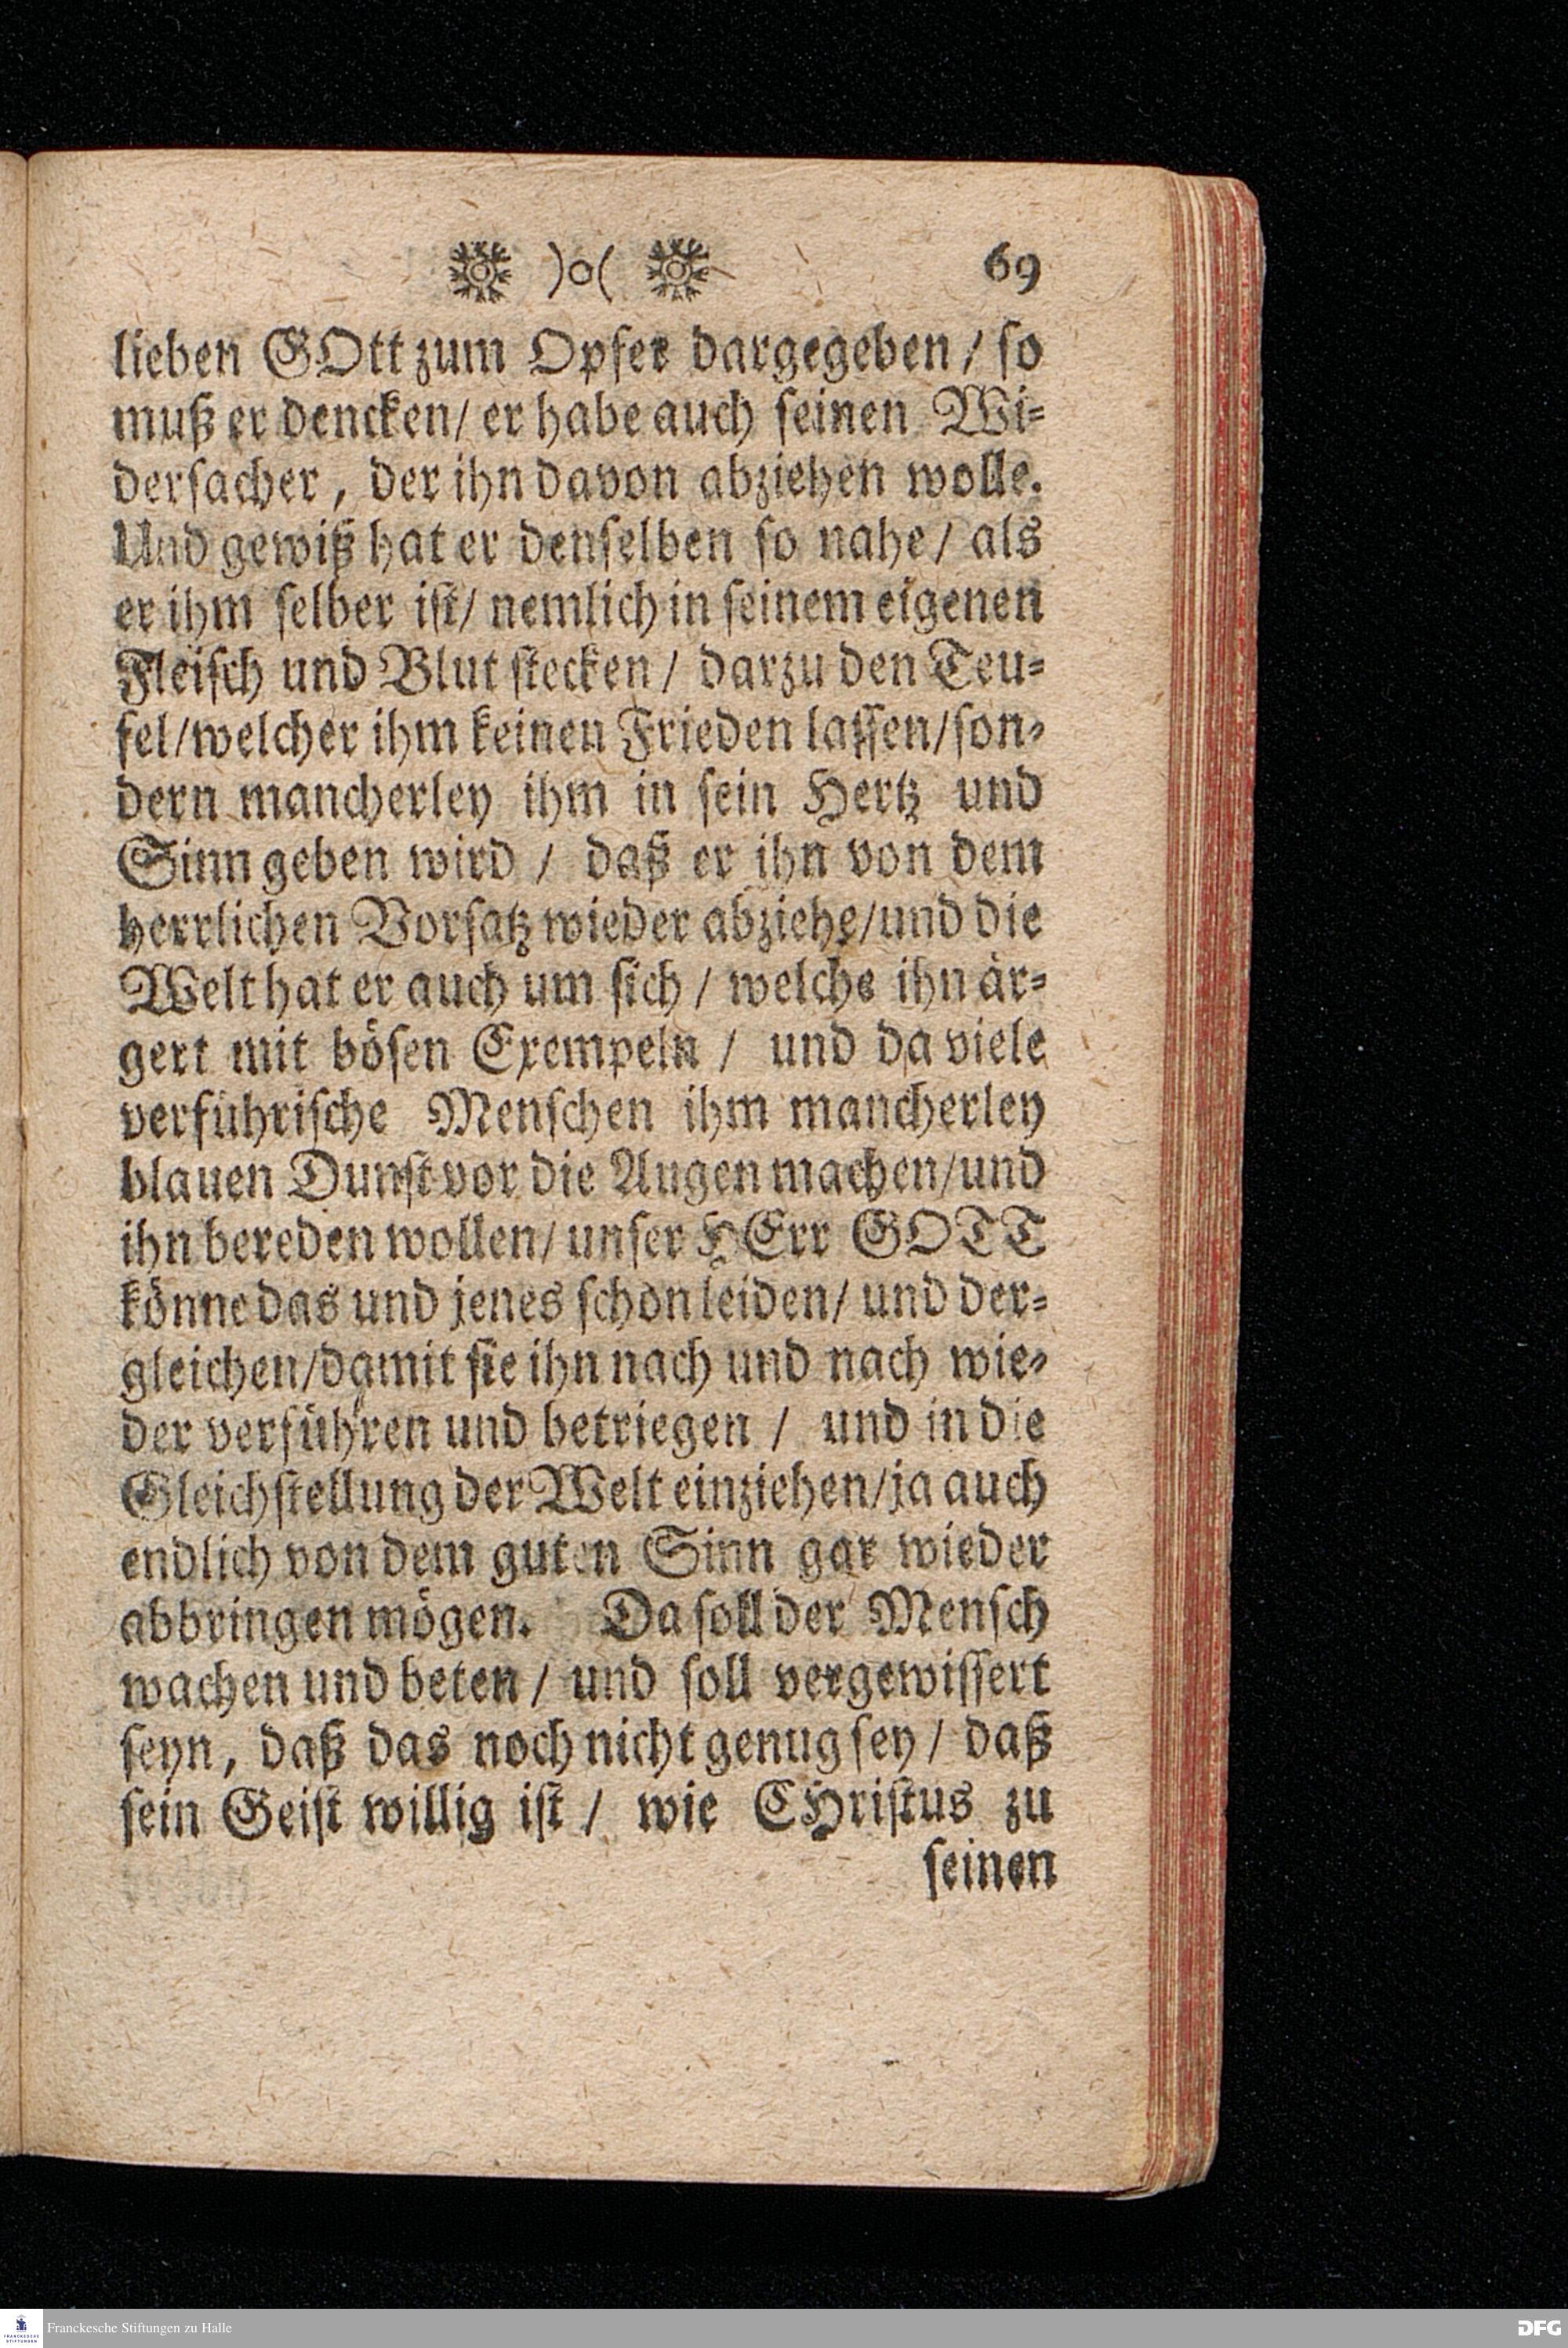 )o( 69
lieben GOtt zum Opfer dargegeben / so
muß er dencken / er habe auch seinen Wi-
dersacher, der ihn davon abziehen wolle.
Und gewiß hat er denselben so nahe / als
er ihm selber ist / nemlich in seinem eigenen
Fleisch und Blut stecken / darzu den Teu-
fel / welcher ihm keinen Frieden lassen / son-
dern mancherley ihm in sein Hertz und
Sinn geben wird / daß er ihn von dem
herrlichen Vorsatz wieder abziehe / und die
Welt hat er auch um sich / welche ihn är-
gert mit bösen Exempeln / und da viele
verführische Menschen ihm mancherley
blauen Dunst vor die Augen machen / und
ihn bereden wollen / unser HErr GOTT
könne das und jenes schon leiden / und der-
gleichen / damit sie ihn nach und nach wie-
der verführen und betriegen / und in die
Gleichstellung der Welt einziehen / ja auch
endlich von dem guten Sinn gar wieder
abbringen mögen. Da soll der Mensch
wachen und beten / und soll vergewissert
seyn, daß das noch nicht genug sey / daß
sein Geist willig ist / wie CHristus zu
seinen
FRANCKESCHE STIFTUNGEN
Franckesche Stiftungen zu Halle
DFG